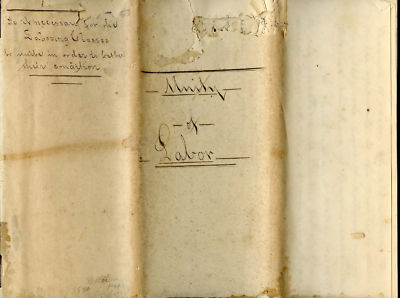 Is it necessary for the
Laboring Classes
to unite in order to better
their condition
Unity
of
Labor